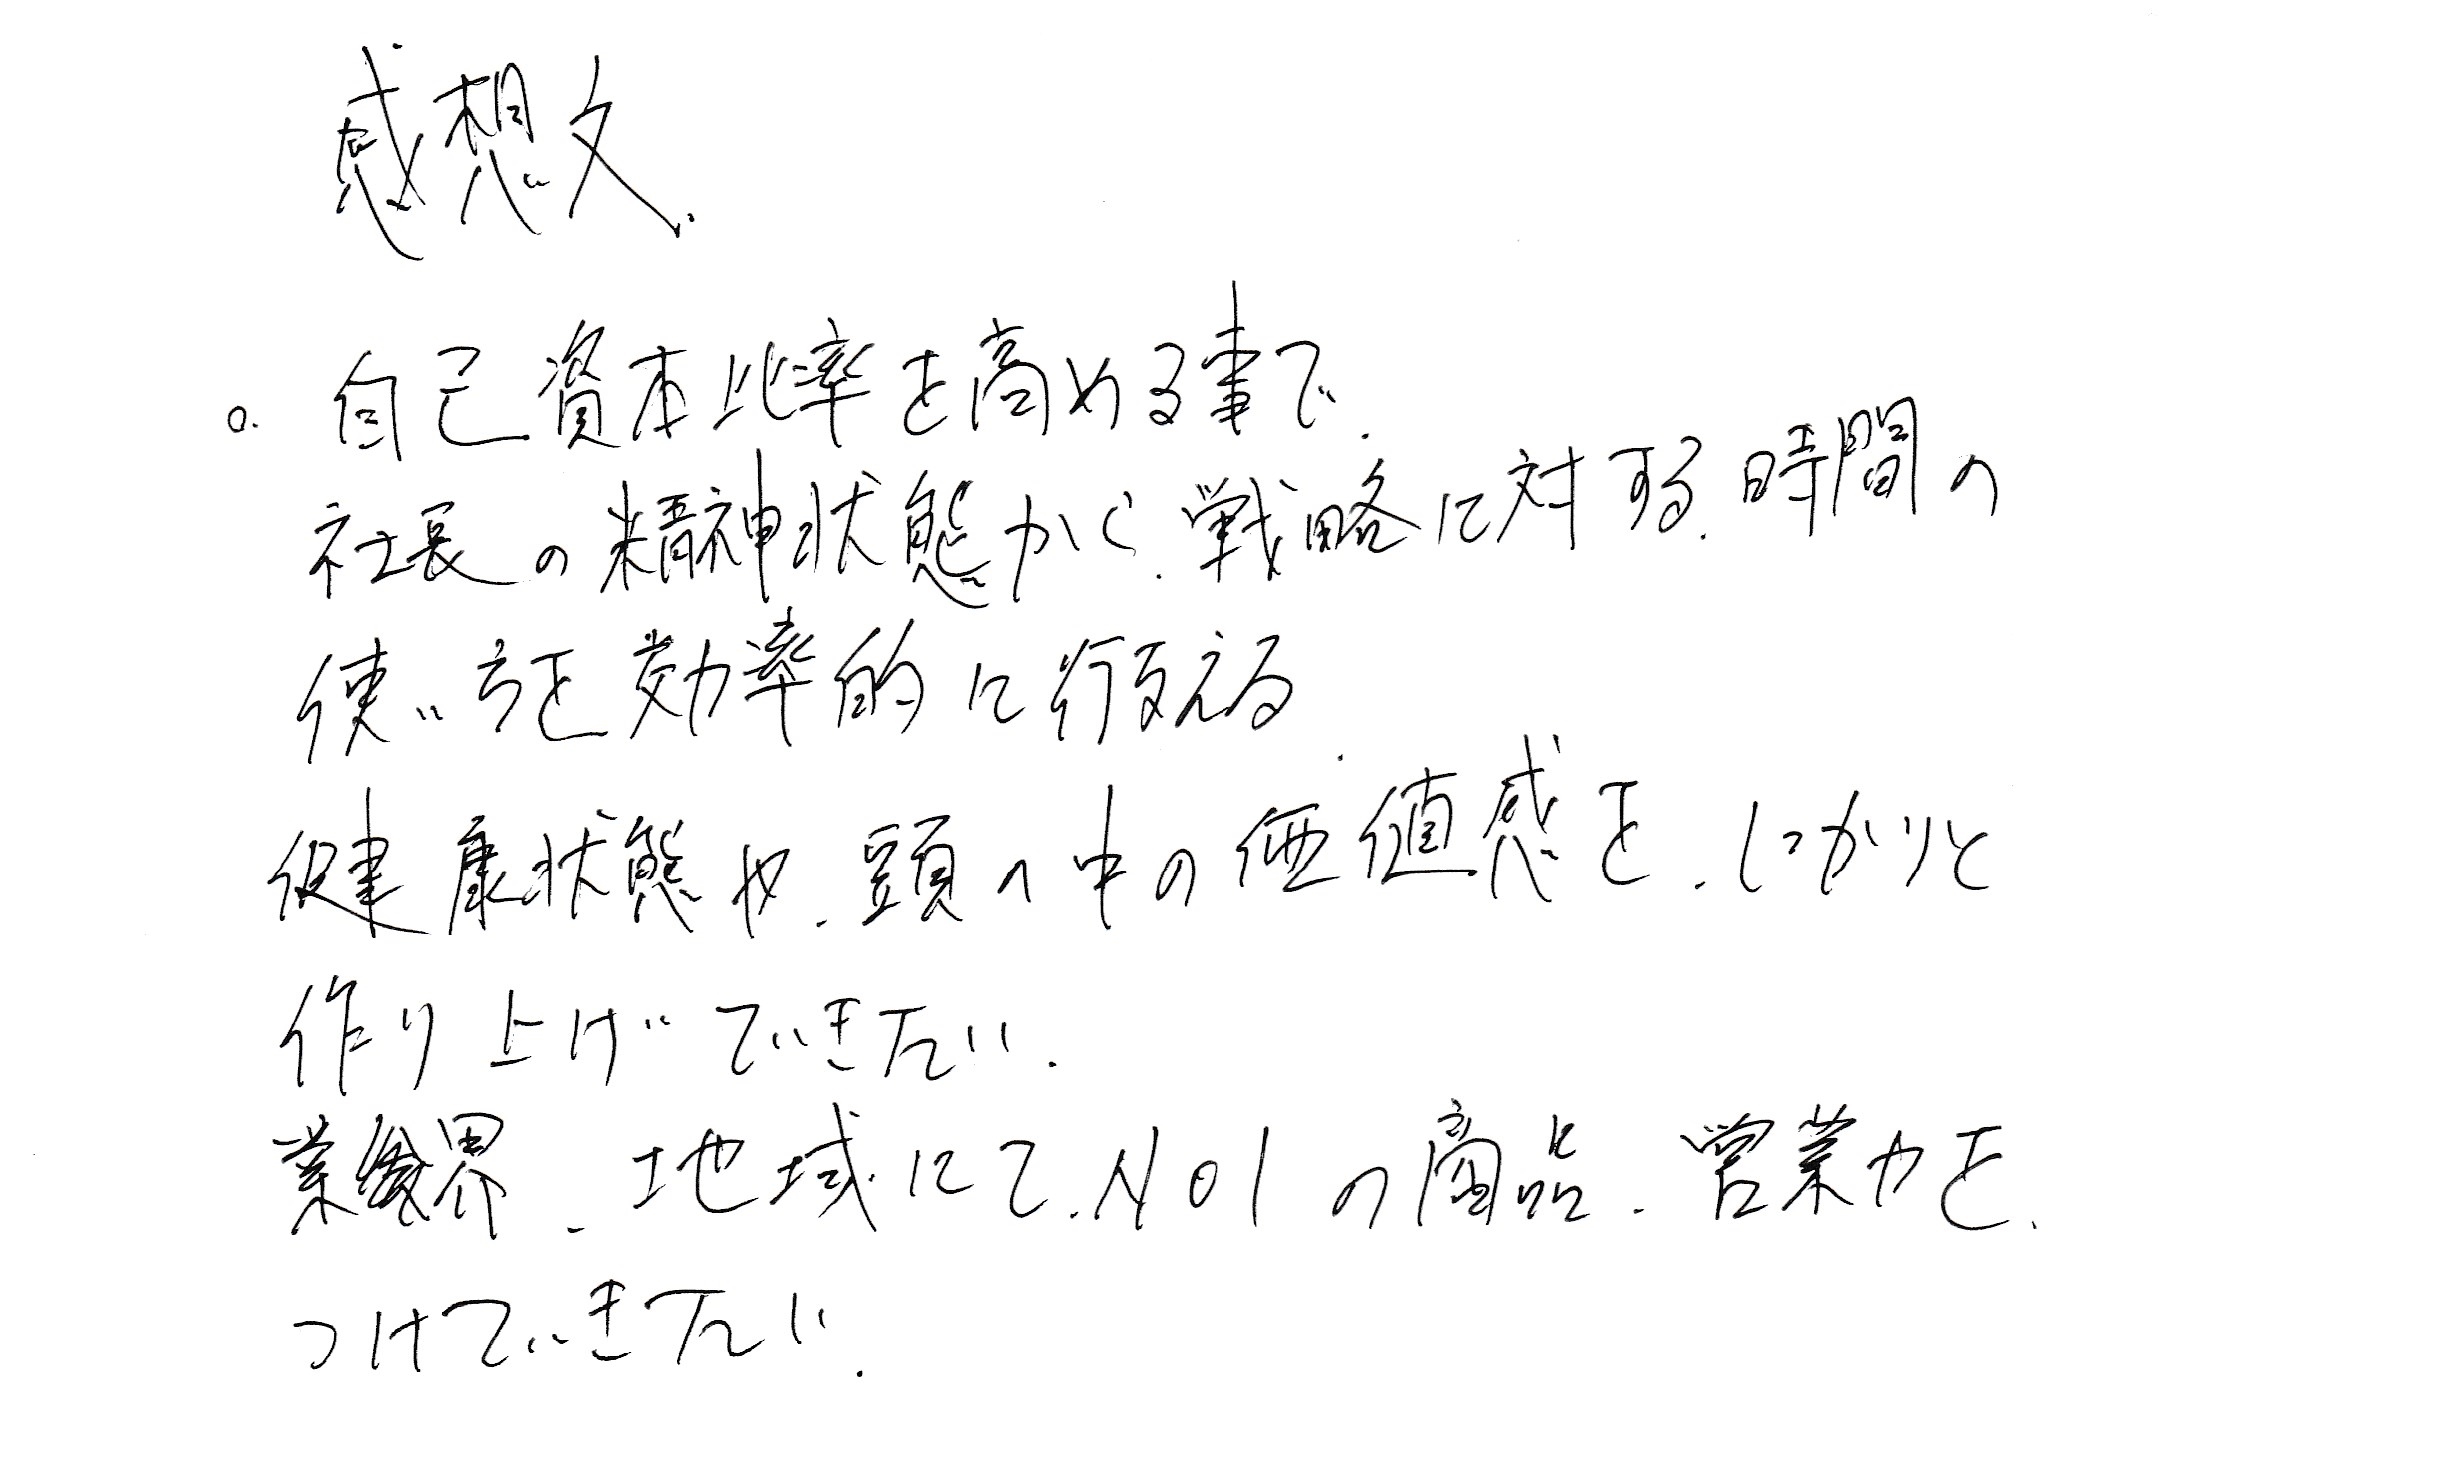 感想文.
o. 自己資本比率を高める事で.
社長の精神状態から.戦略に対する.時間の
使い方を効率的に行える.
健康状態や.頭の中の価値感を.しっかりと
作り上げていきたい.
業界.地域にて.NO1の商品.営業力を.
つけていきたい.